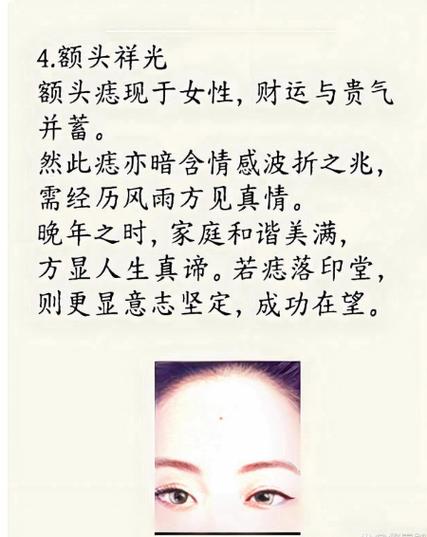 4.额头祥光
额头痣现于女性，财运与贵气
并蓄。
然此痣亦暗含情感波折之兆，
需经历风雨方见真情。
晚年之时，家庭和谐美满，
方显人生真谛。若痣落印堂，
则更显意志坚定，成功在望。